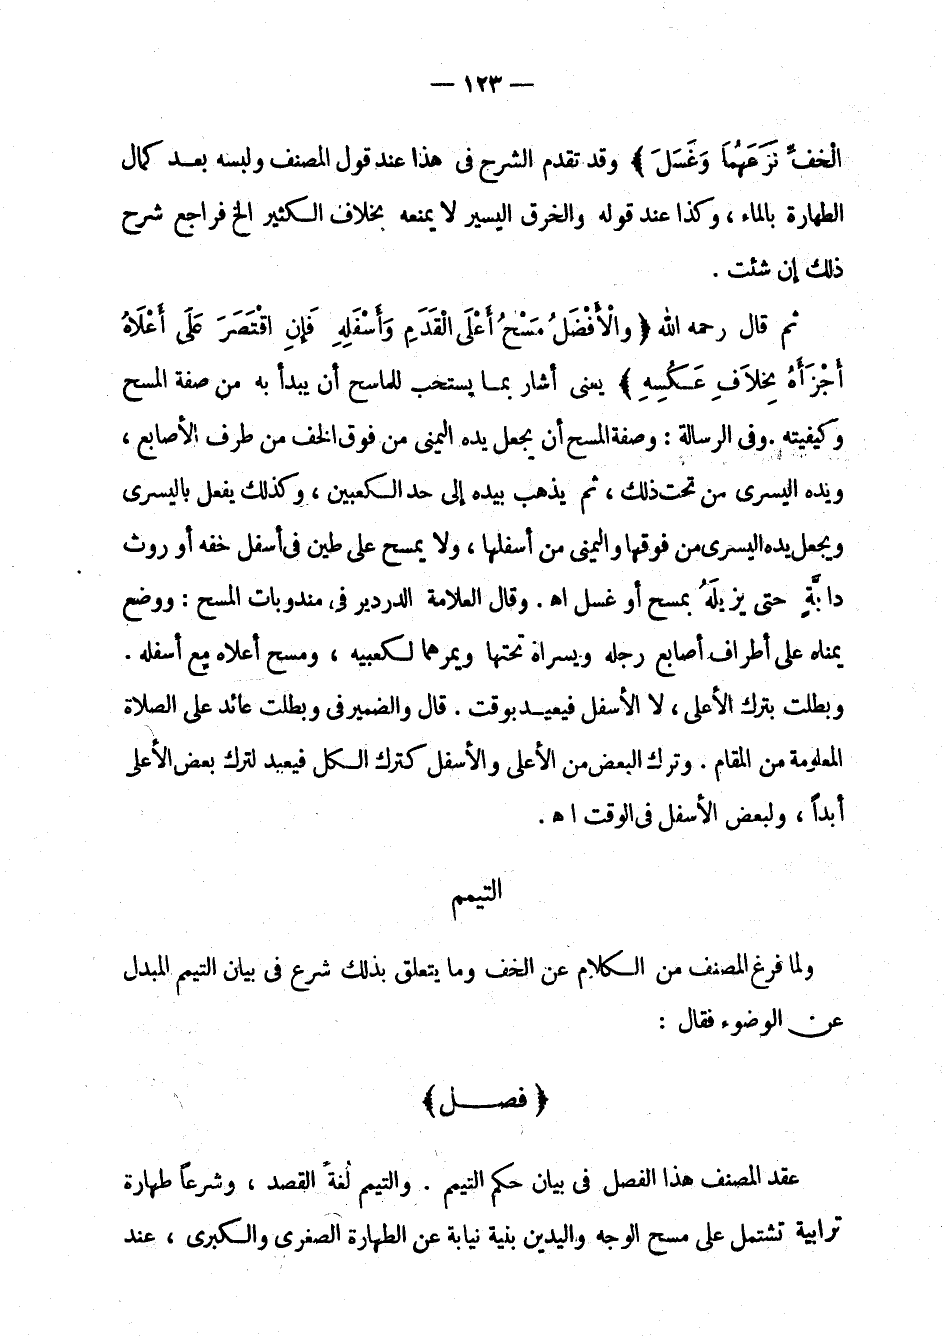 — ١٢٣ —
الْخُفِّ نَزَعَهُمَا وَغَسَلَ ﴾ وقد تقدم الشرح فى هذا عند قول المصنف ولبسه بعد كمال
الطهارة بالماء ، وكذا عند قوله والخرق اليسير لا يمنعه بخلاف الكثير الخ فراجع شرح
ذلك إن شئت .
ثم قال رحمه الله ﴿ والْأَفْضَلُ مَسْحُ أَعْلَى الْقَدَمِ وَأَسْفَلِهِ فَإِنِ اقْتَصَرَ عَلَى أَعْلَاهُ
أَجْزَأَهُ بِخِلاَفِ عَكْسِهِ ﴾ يعنى أشار بما يستحب للماسح أن يبدأ به من صفة المسح
وكيفيته .وفى الرسالة : وصفة المسح أن يجعل يده اليمنى من فوق الخف من طرف الأصابع ،
ويده اليسرى من تحت ذلك ، ثم يذهب بيده إلى حد الكعبين ، وكذلك يفعل باليسرى
ويجعل يده اليسرى من فوقها واليمنى من أسفلها ، ولا يمسح على طين فى أسفل خفه أو روث
دابَّةٍ حتى يزيلَهُ بمسح أو غسل اه . وقال العلامة الدردير فى مندوبات المسح : ووضع
يمناه على أطراف أصابع رجله ويسراه تحتها ويمرهما لكعبيه ، ومسح أعلاه مع أسفله .
وبطلت بترك الأعلى ، لا الأسفل فيعيد بوقت . قال والضمير فى وبطلت عائد على الصلاة
المعلومة من المقام . وترك البعض من الأعلى والأسفل كترك الكل فيعيد لترك بعض الأعلى
أبداً ، ولبعض الأسفل فى الوقت اه .
التيمم
ولما فرغ المصنف من الكلام عن الخف وما يتعلق بذلك شرع فى بيان التيمم المبدل
عن الوضوء فقال :
﴿ فصــل ﴾
عقد المصنف هذا الفصل فى بيان حكم التيمم . والتيمم لُغةً القصد ، وشرعاً طهارة
ترابية تشتمل على مسح الوجه واليدين بنية نيابة عن الطهارة الصغرى والكبرى ، عند